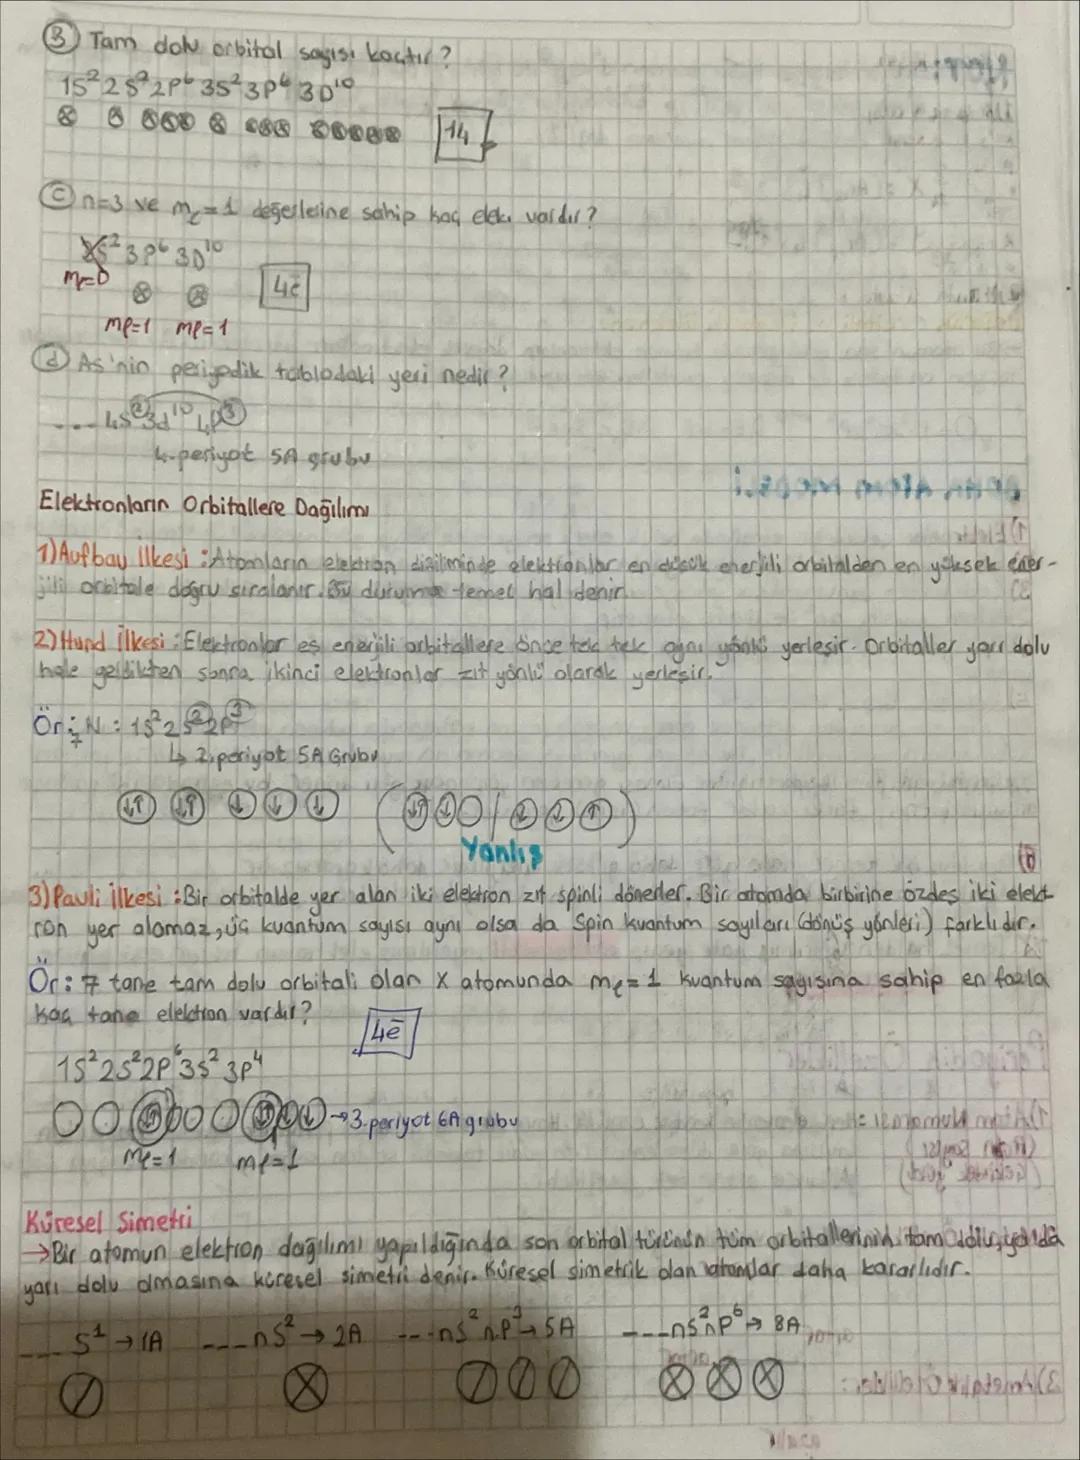 B) Tam dolu orbital sayısı kaçtır?
1S² 2S² 2P⁶ 3S² 3P⁶ 3D¹⁰
14
C) n=3 ve mℓ=1 değerlerine sahip kaç elekt. vardır?
3S² 3P⁶ 3D¹⁰
mℓ=0
4ē
mℓ=1 mℓ=1
d) As'nin periyodik tablodaki yeri nedir?
....4S² 3d¹⁰ 4P³
4.periyot 5A grubu
Elektronların Orbitallere Dağılımı
1) Aufbau İlkesi : Atomların elektron diziliminde elektronlar en düşük enerjili orbitalden en yüksek ener-
jili orbitale doğru sıralanır. Bu duruma temel hal denir.
2) Hund İlkesi : Elektronlar eş enerjili orbitallere önce tek tek aynı yönlü yerleşir. Orbitaller yarı dolu
hale geldikten sonra ikinci elektronlar zıt yönlü olarak yerleşir.
Ör: ₇N : 1S² 2S² 2P³
↳ 2.periyot 5A Grubu
↓↑ ↓↑ ↓ ↓ ↓ ( ↓↑ ↓ / ↓ ↓ ↑ )
Yanlış
3) Pauli İlkesi : Bir orbitalde yer alan iki elektron zıt spinli dönerler. Bir atomda birbirine özdeş iki elekt
ron yer alamaz, üç kuantum sayısı aynı olsa da Spin kuantum sayıları (dönüş yönleri) farklıdır.
Ör: 7 tane tam dolu orbitali olan X atomunda mℓ=1 kuantum sayısına sahip en fazla
kaç tane elektron vardır?
4ē
1S² 2S² 2P⁶ 3S² 3P⁴
→3.periyot 6A grubu
mℓ=1 mℓ=1
Küresel Simetri
→Bir atomun elektron dağılımı yapıldığında son orbital türünün tüm orbitallerinin tam dolu, ya da
yarı dolu olmasına küresel simetri denir. Küresel simetrik olan atomlar daha kararlıdır.
___ S¹ → 1A ___nS² → 2A ---nS² nP³→ 5A ---nS² nP⁶→ 8A